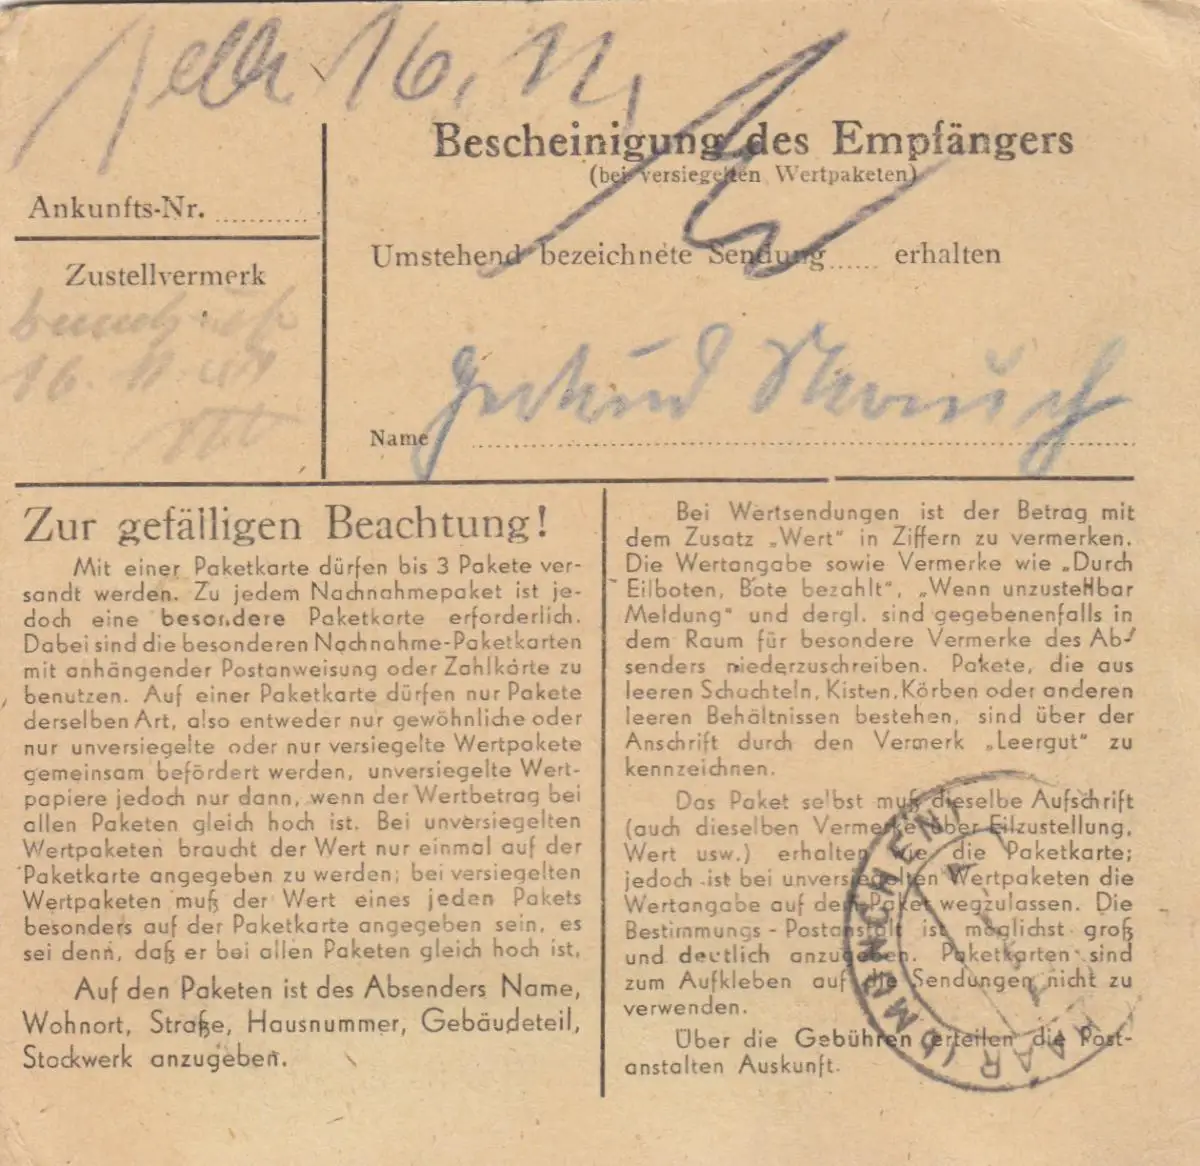 16. 11.
Bescheinigung des Empfängers
(bei versiegelten Wertpaketen)
Ankunfts-Nr. ............
Umstehend bezeichnete Sendung...... erhalten
Zustellvermerk
16. 11.
Gertrud
Name
Zur gefälligen Beachtung!
Mit einer Paketkarte dürfen bis 3 Pakete ver-
sandt werden. Zu jedem Nachnahmepaket ist je-
doch eine besondere Paketkarte erforderlich.
Dabei sind die besonderen Nachnahme-Paketkarten
mit anhängender Postanweisung oder Zahlkarte zu
benutzen. Auf einer Paketkarte dürfen nur Pakete
derselben Art, also entweder nur gewöhnliche oder
nur unversiegelte oder nur versiegelte Wertpakete
gemeinsam befördert werden, unversiegelte Wert-
papiere jedoch nur dann, wenn der Wertbetrag bei
allen Paketen gleich hoch ist. Bei unversiegelten
Wertpaketen braucht der Wert nur einmal auf der
Paketkarte angegeben zu werden; bei versiegelten
Wertpaketen muß der Wert eines jeden Pakets
besonders auf der Paketkarte angegeben sein, es
sei denn, daß er bei allen Paketen gleich hoch ist.
Auf den Paketen ist des Absenders Name,
Wohnort, Straße, Hausnummer, Gebäudeteil,
Stockwerk anzugeben.
Bei Wertsendungen ist der Betrag mit
dem Zusatz „Wert" in Ziffern zu vermerken.
Die Wertangabe sowie Vermerke wie „Durch
Eilboten, Bote bezahlt", „Wenn unzustellbar
Meldung" und dergl. sind gegebenenfalls in
dem Raum für besondere Vermerke des Ab-
senders niederzuschreiben. Pakete, die aus
leeren Schachteln, Kisten, Körben oder anderen
leeren Behältnissen bestehen, sind über der
Anschrift durch den Vermerk „Leergut" zu
kennzeichnen.
Das Paket selbst muß dieselbe Aufschrift
(auch dieselben Vermerke über Eilzustellung,
Wert usw.) erhalten wie die Paketkarte;
jedoch ist bei unversiegelten Wertpaketen die
Wertangabe auf dem Paket wegzulassen. Die
Bestimmungs-Postanstalt ist möglichst groß
und deutlich anzugeben. Paketkarten sind
zum Aufkleben auf die Sendungen nicht zu
verwenden.
Über die Gebühren erteilen die Post-
anstalten Auskunft.
HAAR (b MÜNCHEN)